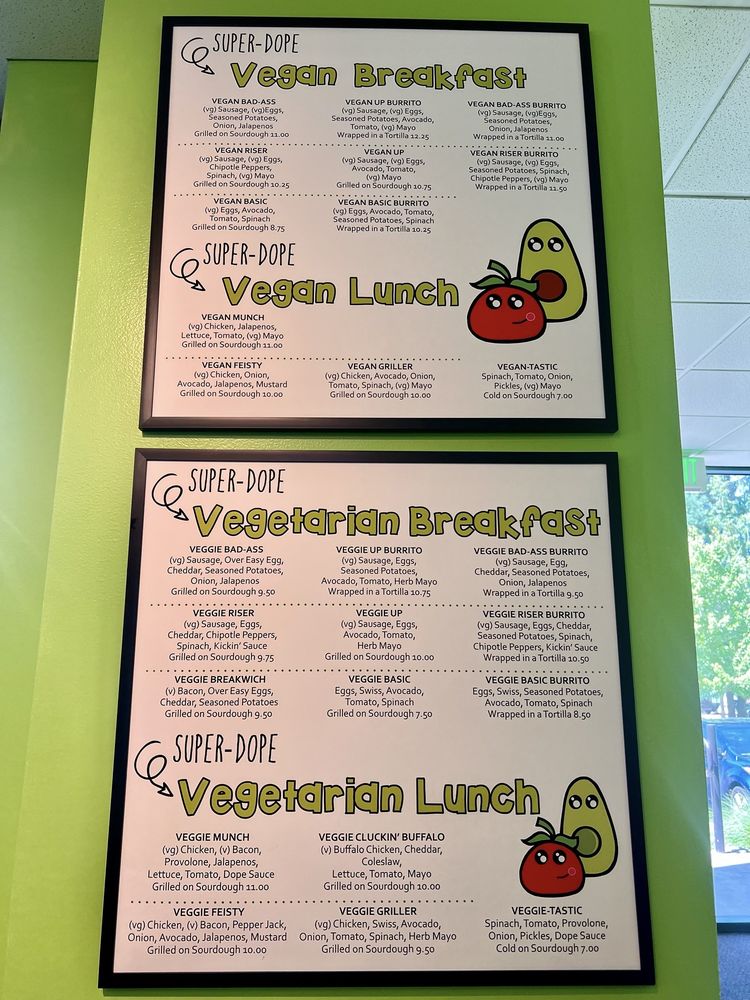 SUPER-DOPE
Vegan Breakfast
VEGAN BAD-ASS
(vg) Sausage, (vg)Eggs,
Seasoned Potatoes,
Onion, Jalapenos
Grilled on Sourdough 11.00
VEGAN UP BURRITO
(vg) Sausage, (vg) Eggs,
Seasoned Potatoes, Avocado,
Tomato, (vg) Mayo
Wrapped in a Tortilla 12.25
VEGAN BAD-ASS BURRITO
(vg) Sausage, (vg)Eggs,
Seasoned Potatoes,
Onion, Jalapenos
Wrapped in a Tortilla 11.00
VEGAN RISER
(vg) Sausage, (vg) Eggs,
Chipotle Peppers,
Spinach, (vg) Mayo
Grilled on Sourdough 10.25
VEGAN UP
(vg) Sausage, (vg) Eggs,
Avocado, Tomato,
(vg) Mayo
Grilled on Sourdough 10.75
VEGAN RISER BURRITO
(vg) Sausage, (vg) Eggs,
Seasoned Potatoes, Spinach,
Chipotle Peppers, (vg) Mayo
Wrapped in a Tortilla 11.50
VEGAN BASIC
(vg) Eggs, Avocado,
Tomato, Spinach
Grilled on Sourdough 8.75
VEGAN BASIC BURRITO
(vg) Eggs, Avocado, Tomato,
Seasoned Potatoes, Spinach
Wrapped in a Tortilla 10.25
SUPER-DOPE
Vegan Lunch
VEGAN MUNCH
(vg) Chicken, Jalapenos,
Lettuce, Tomato, (vg) Mayo
Grilled on Sourdough 11.00
VEGAN FEISTY
(vg) Chicken, Onion,
Avocado, Jalapenos, Mustard
Grilled on Sourdough 10.00
VEGAN GRILLER
(vg) Chicken, Avocado, Onion,
Tomato, Spinach, (vg) Mayo
Grilled on Sourdough 10.00
VEGAN-TASTIC
Spinach, Tomato, Onion,
Pickles, (vg) Mayo
Cold on Sourdough 7.00
SUPER-DOPE
Vegetarian Breakfast
VEGGIE BAD-ASS
(vg) Sausage, Over Easy Egg,
Cheddar, Seasoned Potatoes,
Onion, Jalapenos
Grilled on Sourdough 9.50
VEGGIE UP BURRITO
(vg) Sausage, Eggs,
Seasoned Potatoes,
Avocado, Tomato, Herb Mayo
Wrapped in a Tortilla 10.75
VEGGIE BAD-ASS BURRITO
(vg) Sausage, Egg,
Cheddar, Seasoned Potatoes,
Onion, Jalapenos
Wrapped in a Tortilla 9.50
VEGGIE RISER
(vg) Sausage, Eggs,
Cheddar, Chipotle Peppers,
Spinach, Kickin' Sauce
Grilled on Sourdough 9.75
VEGGIE UP
(vg) Sausage, Eggs,
Avocado, Tomato,
Herb Mayo
Grilled on Sourdough 10.00
VEGGIE RISER BURRITO
(vg) Sausage, Eggs, Cheddar,
Seasoned Potatoes, Spinach,
Chipotle Peppers, Kickin' Sauce
Wrapped in a Tortilla 10.50
VEGGIE BREAKWICH
(v) Bacon, Over Easy Eggs,
Cheddar, Seasoned Potatoes
Grilled on Sourdough 9.50
VEGGIE BASIC
Eggs, Swiss, Avocado,
Tomato, Spinach
Grilled on Sourdough 7.50
VEGGIE BASIC BURRITO
Eggs, Swiss, Seasoned Potatoes,
Avocado, Tomato, Spinach
Wrapped in a Tortilla 8.50
SUPER-DOPE
Vegetarian Lunch
VEGGIE MUNCH
(vg) Chicken, (v) Bacon,
Provolone, Jalapenos,
Lettuce, Tomato, Dope Sauce
Grilled on Sourdough 11.00
VEGGIE CLUCKIN' BUFFALO
(v) Buffalo Chicken, Cheddar,
Coleslaw,
Lettuce, Tomato, Mayo
Grilled on Sourdough 10.00
VEGGIE FEISTY
(vg) Chicken, (v) Bacon, Pepper Jack,
Onion, Avocado, Jalapenos, Mustard
Grilled on Sourdough 10.00
VEGGIE GRILLER
(vg) Chicken, Swiss, Avocado,
Onion, Tomato, Spinach, Herb Mayo
Grilled on Sourdough 9.50
VEGGIE-TASTIC
Spinach, Tomato, Provolone,
Onion, Pickles, Dope Sauce
Cold on Sourdough 7.00